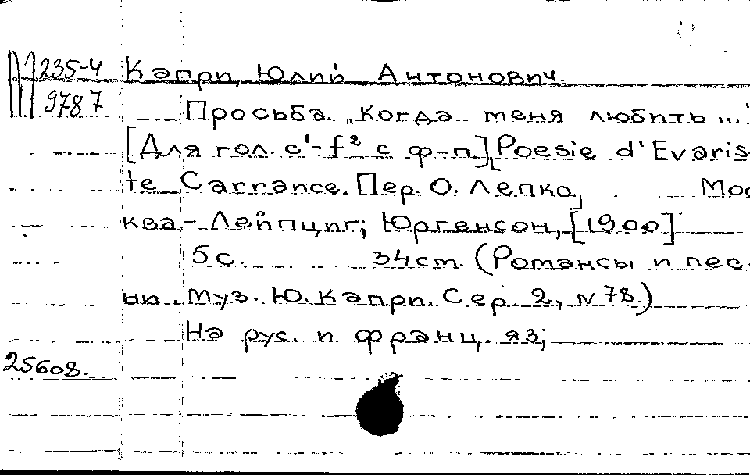 Ш 235-4 Капри, Юлий Антонович.
9787 Просьба. „Когда меня любить..."
[Для гол. c¹-f² с ф-п.] Poesie d'Evaris-
te Carrance. Пер. О. Лепко, Мос
ква-Лейпциг; Юргенсон, [1900]
5 с. 34 cm. (Романсы и пес-
ни. Муз. Ю. Капри. Сер. 2, N 78.)
На рус. и франц. яз;
25608.